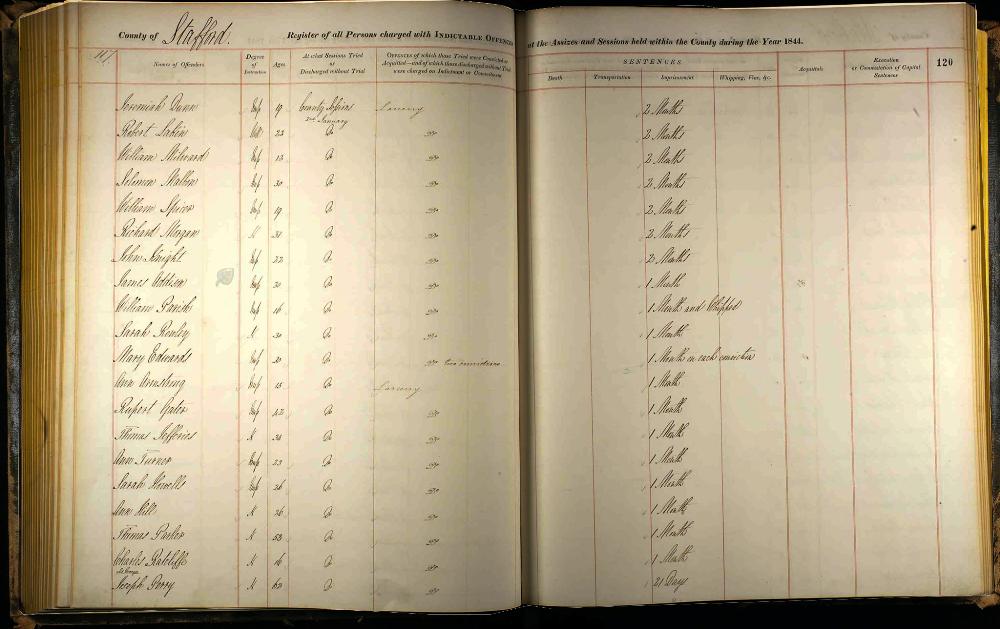 County of Stafford. Register of all Persons charged with INDICTABLE OFFENCES at the Assizes and Sessions held within the County during the Year 1844.
117 120
Names of Offenders Degree of Instruction Ages At what Sessions Tried or Discharged without Trial OFFENCES of which those Tried were Convicted or Acquitted—and of which those discharged without Trial were charged on Indictment or Commitment SENTENCES Death Transportation Imprisonment Whipping, Fine, &c. Acquittals Execution or Commutation of Capital Sentences
Jeremiah Dunn Imp 19 County Sessions 2nd January Larceny 2 Months
Robert Do Do 2 Months
William Milward Imp Do Do 2 Months
Solomon Imp 30 Do Do 2 Months
William Spicer Imp 19 Do Do 2 Months
Richard Morgan N Do Do 2 Months
John Knight Imp 22 Do Do 2 Months
James Addison Imp 20 Do Do 1 Month
William Parish Imp 16 Do Do 1 Month and Whipped
Sarah Rowley N 30 Do Do 1 Month
Mary Edwards Imp 20 Do Do two convictions 1 Month on each conviction
Ann Armstrong Imp 15 Do Larceny 1 Month
Rupert Gater Imp 42 Do Do 1 Month
Thomas Jefferies N Do Do 1 Month
Ann Turner Imp 23 Do Do 1 Month
Sarah Howells Imp 26 Do Do 1 Month
Ann Hill N 26 Do Do 1 Month
Thomas Parker N 53 Do Do 1 Month
Charles Ratcliffe N 16 Do Do 1 Month
Joseph Perry N 60 Do Do 21 Days